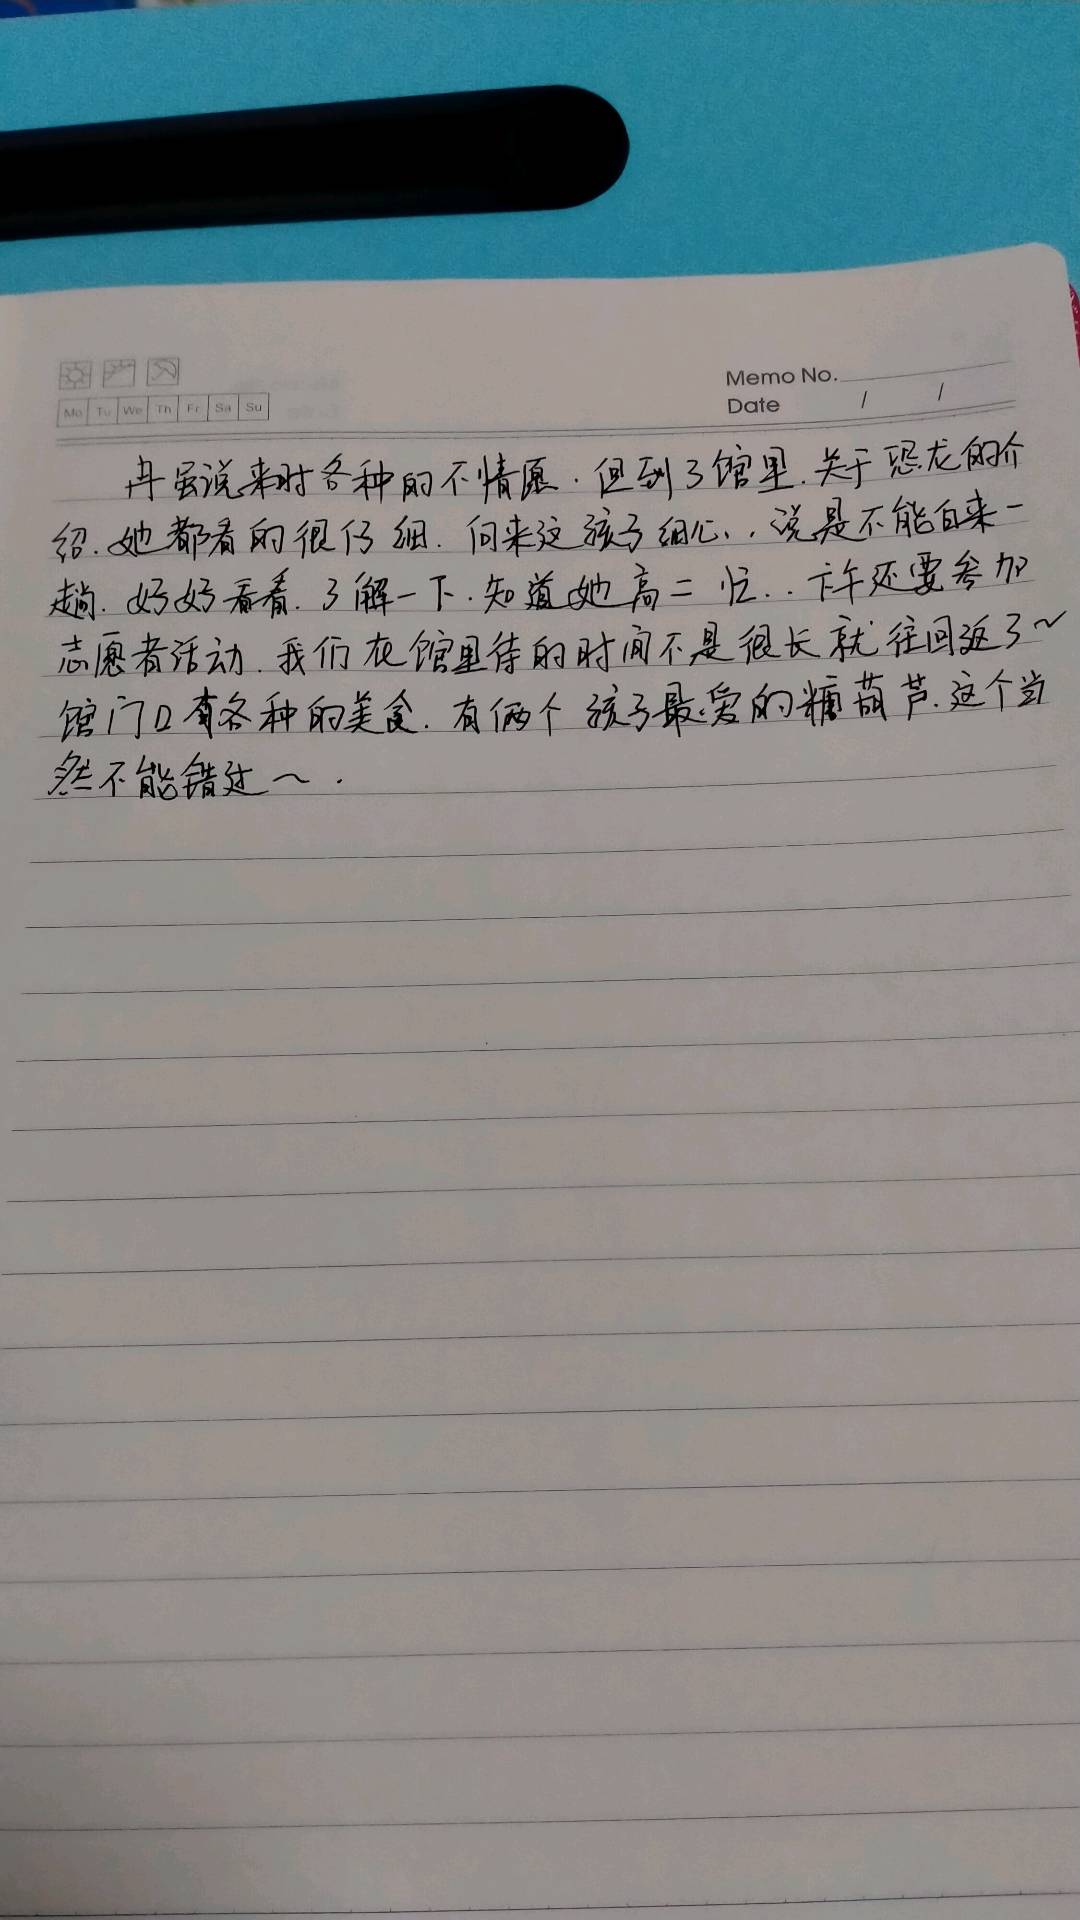 Memo No.
Mo Tu We Th Fr Sa Su
Date / /
冉虽说来时各种的不情愿.但到了馆里.关于恐龙的介
绍.她都看的很仔细.向来这孩子细心..说是不能白来一
趟.好好看看.了解一下.知道她高二忙..下午还要参加
志愿者活动.我们在馆里待的时间不是很长就往回返了~
馆门口有各种的美食.有俩个孩子最爱的糖葫芦.这个当
然不能错过~.